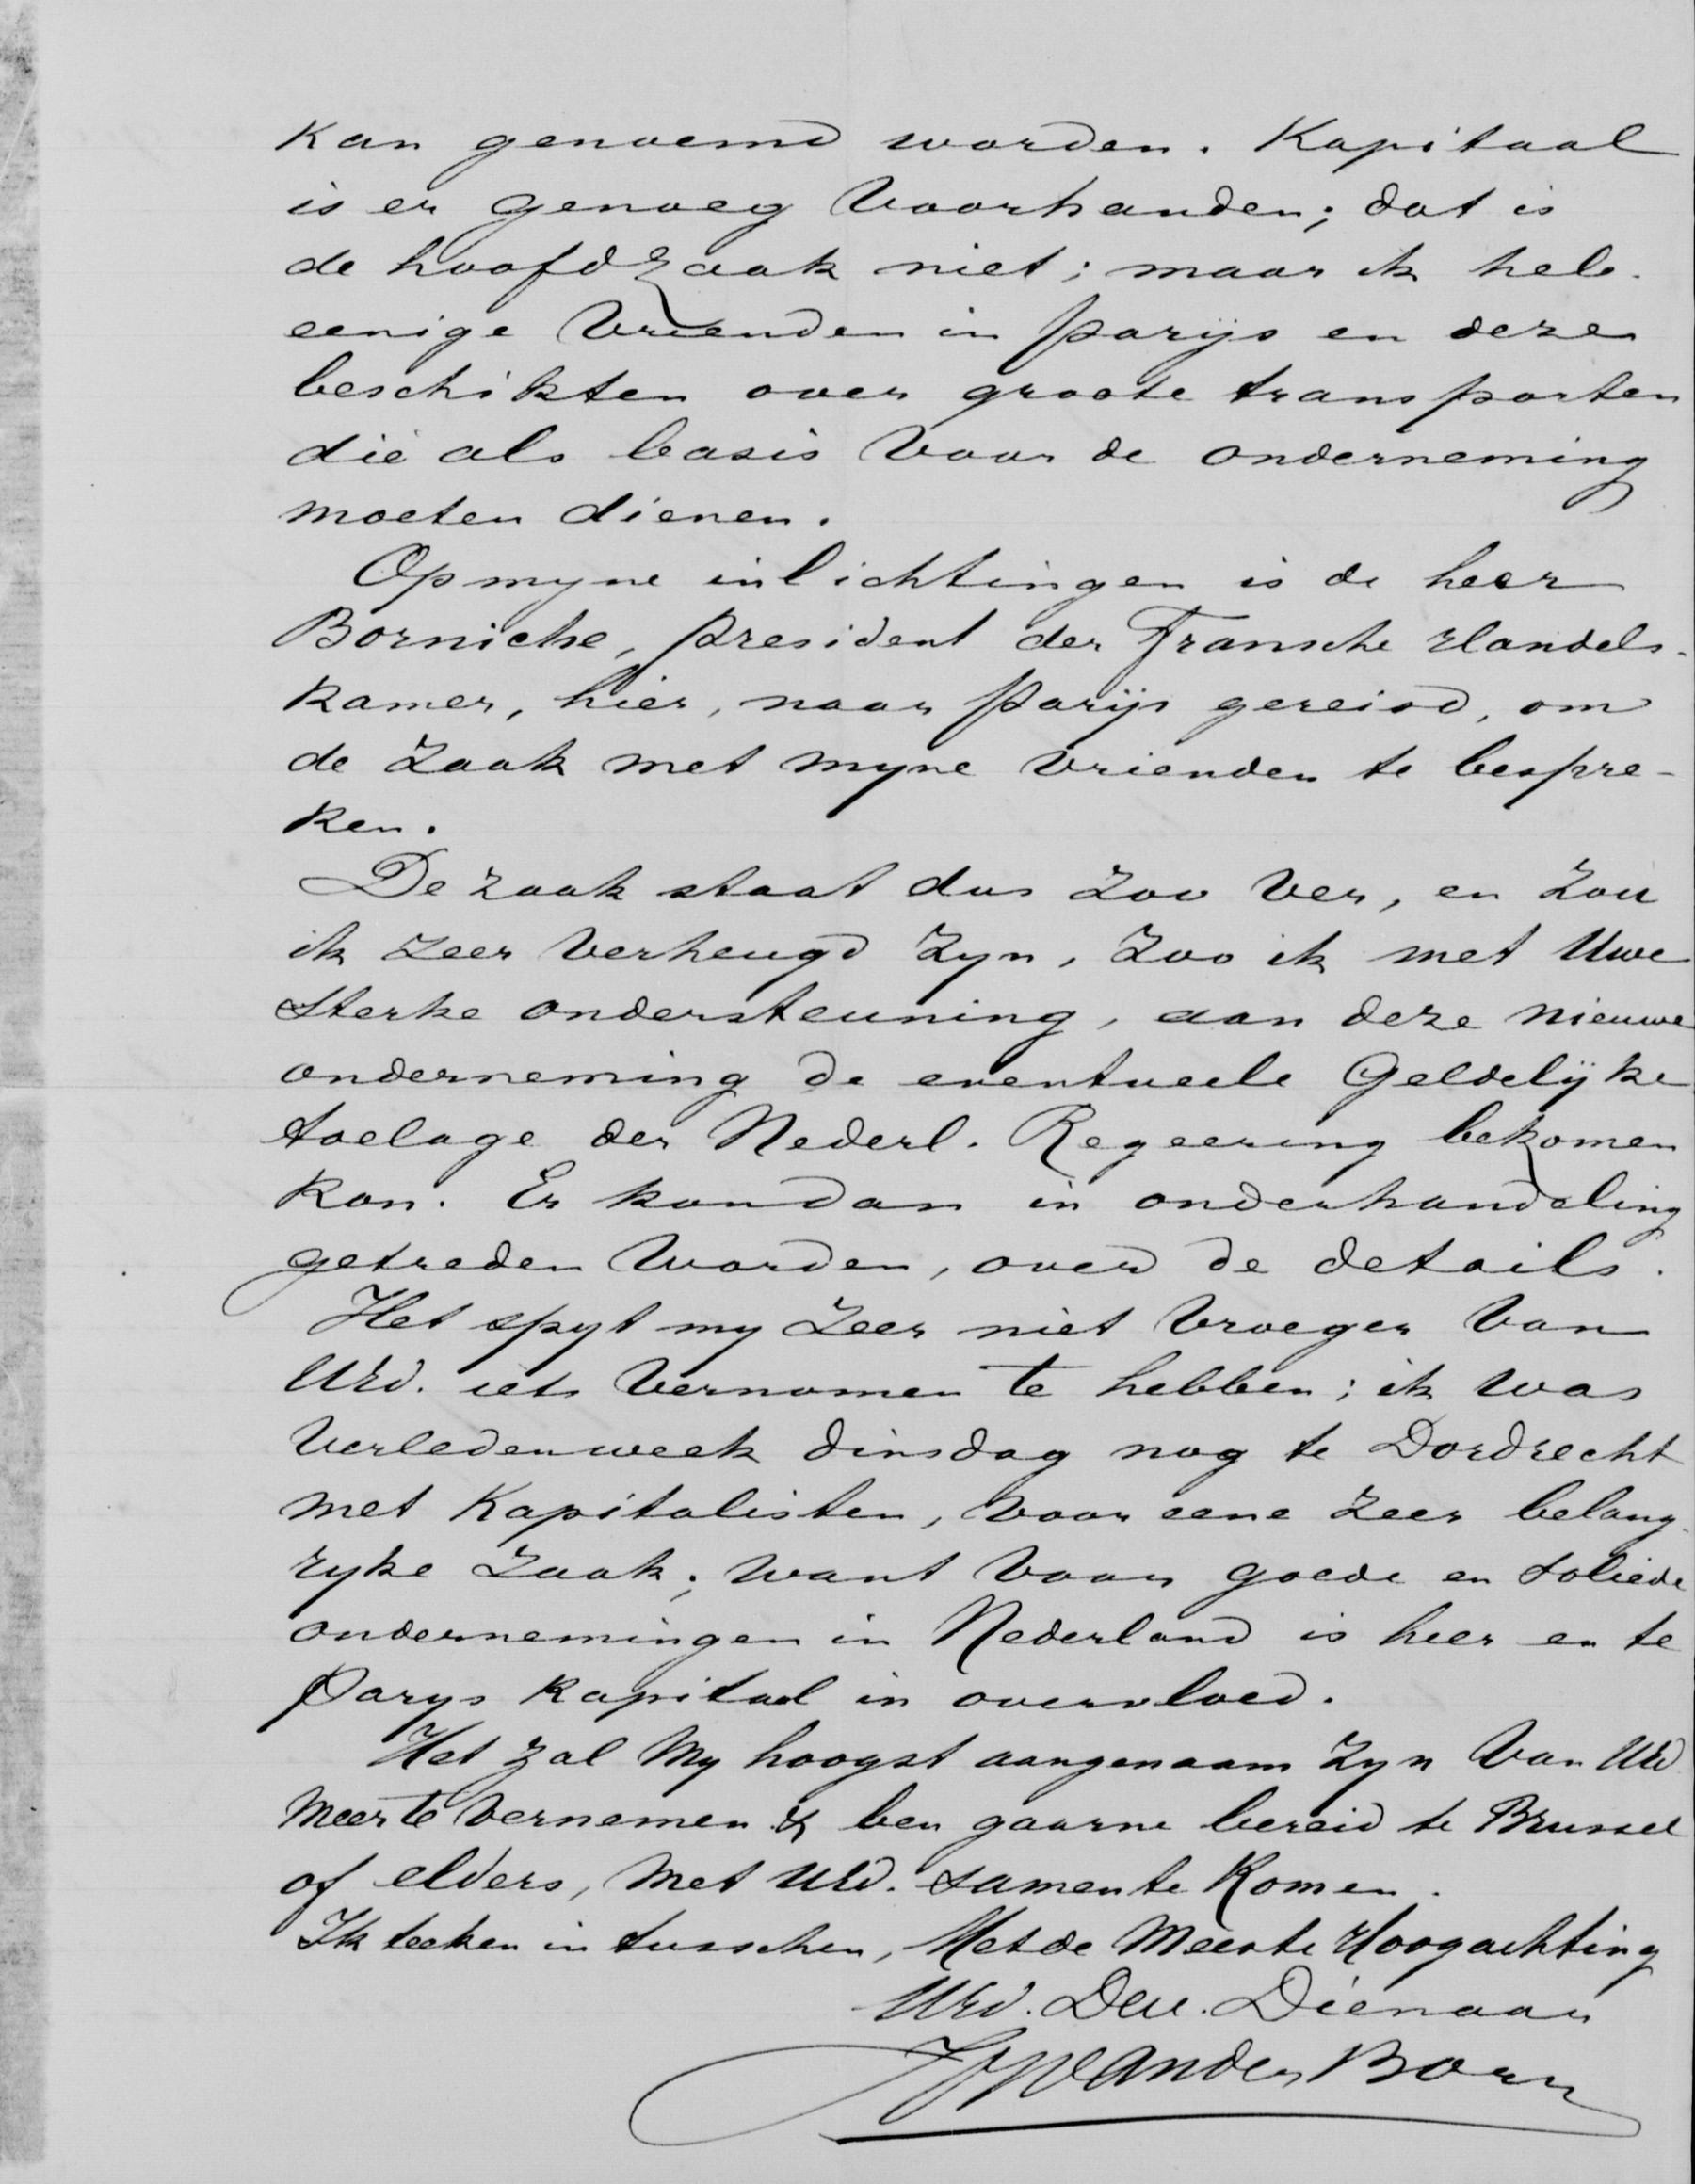 kan genoemd worden. Kapitaal
is er genoeg voorhanden; dat is
de hoofdzaak niet; maar ik heb
eenige vrienden in Parijs en deze
beschikten over groote transporten
die als basis voor de onderneming
moeten dienen.
Op myne inlichtingen is de heer
Borniche, president der Fransche Handels-
kamer, hier, naar Parijs gereisd, om
de zaak met myne vrienden te bespre-
ken.
De zaak staat dus zoo ver, en zou
ik zeer verheugd zyn, zoo ik met Uwe
sterke ondersteuning, aan deze nieuwe
onderneming de eventueele Geldelijke
toelage der Nederl. Regeering bekomen
kon. Er kon dan in onderhandeling
getreden worden, over de details.
Het spyt my zeer niet vroeger van
UEd. iets vernomen te hebben; ik was
verledenweek dinsdag nog te Dordrecht
met Kapitalisten, voor eene zeer belang-
ryke zaak; want voor goede en soliede
ondernemingen in Nederland is hier en te
Parys kapitaal in overvloed.
Het zal my hoogst aangenaam zyn van UEd
meer te vernemen & ben gaarne bereid te Brussel
of elders, met UEd. samen te komen.
Ik teeken intusschen, Met de Meeste Hoogachting
UEd. Dew. Dienaar
van den Born